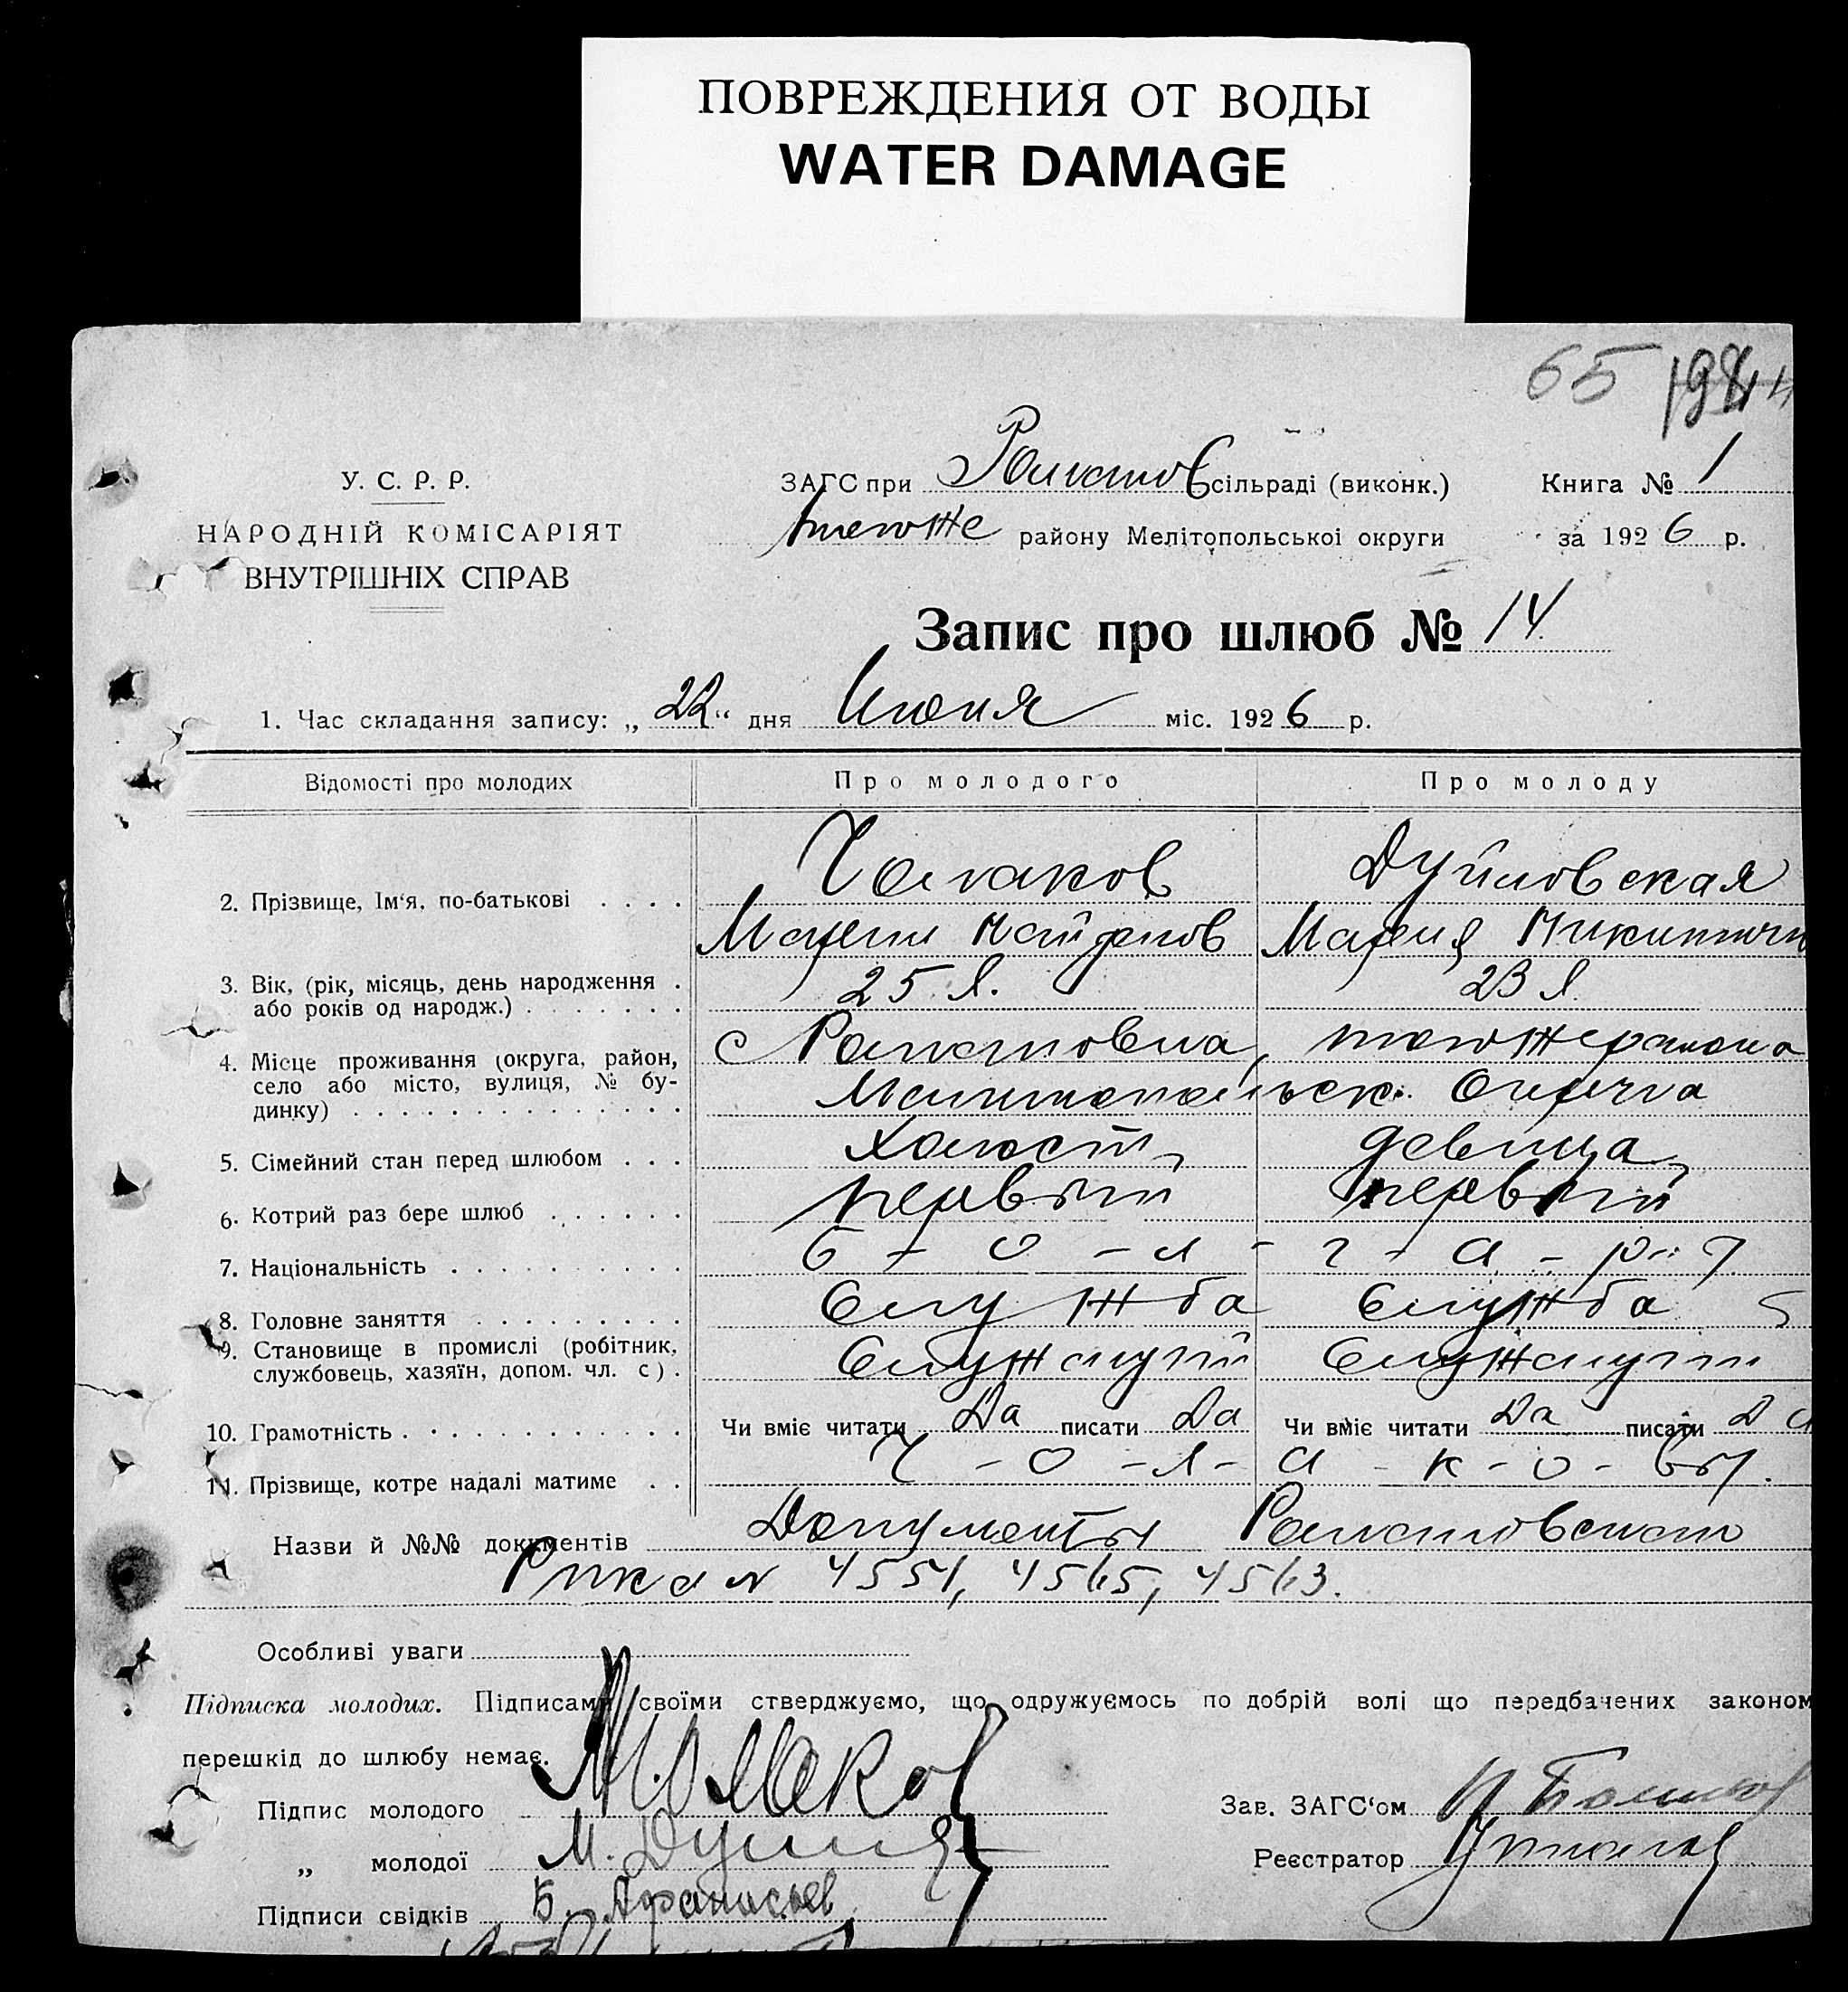 ПОВРЕЖДЕНИЯ ОТ ВОДЫ
WATER DAMAGE
65
У. С. Р. Р.
НАРОДНІЙ КОМІСАРІЯТ
ВНУТРІШНІХ СПРАВ
ЗАГС при сільраді (виконк.)
тогоже району Мелітопольскої округи
Книга № 1
за 1926 р.
Запис про шлюб № 14
1. Час складання запису: „22“ дня Июня міс. 1926 р.
Відомості про молодих Про молодого Про молоду
2. Прізвище, Ім‘я, по-батькові . . . .
Чолаков Дуйловская
Мария
3. Вік, (рік, місяць, день народження .
або років од народж.) . . . . . . .
25 л. 23 л.
4. Місце проживання (округа, район,
село або місто, вулиця, № бу-
динку) . . . . . . . . . . . . . .
с Романовка, тогоже района
Мелитопольск. Округа
5. Сімейний стан перед шлюбом . . . холост девица
6. Котрий раз бере шлюб . . . . . . первый первый
7. Національність . . . . . . . . . . б - о - л - г - а - р - ы
8. Головне заняття . . . . . . . . . Служба Служба
9. Становище в промислі (робітник,
службовець, хазяїн, допом. чл. с) .
Служащий Служащий
10. Грамотність . . . . . . . . . . . . Чи вміє читати Да писати Да Чи вміє читати Да писати Да
11. Прізвище, котре надалі матиме . . Ч - о - л - а - к - о - вы.
Назви й №№ документів Документы
Рика № 4551, 4565, 4563.
Особливі уваги
Підписка молодих. Підписами своїми стверджуємо, що одружуємось по добрій волі що передбачених законом
перешкід до шлюбу немає.
Підпис молодого
Зав. ЗАГС‘ом
„ молодої М.
Реєстратор
Підписи свідків Б. Афанасьев